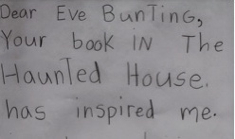 Dear Eve Bunting,
Your book in The
Haunted House.
has inspired me.